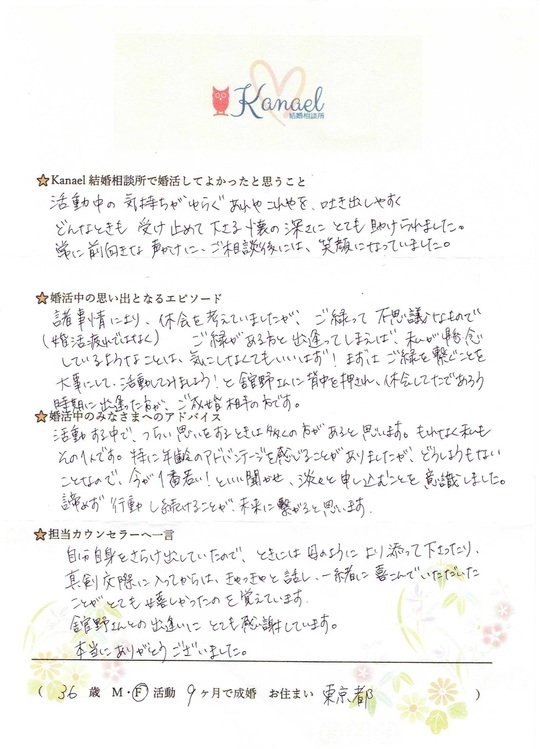 Kanael
結婚相談所
Kanael 結婚相談所で婚活してよかったと思うこと
活動中の気持ちがゆらぐあれやこれやを、吐き出しやすく
どんなときも受け止めて下さる懐の深さにとても助けられました。
常に前向きな声かけに、ご相談後には、笑顔になっていました。
婚活中の思い出となるエピソード
諸事情により、休会を考えていましたが、ご縁って不思議なもので
(婚活疲れではなく) ご縁がある方と出逢ってしまえば、私が懸念
しているようなことは、気にしなくてもいいはず!まずはご縁を繋ぐことを
大事にして、活動してみましょう!と舘野さんに背中を押され、休会してたであろう
時期に出逢った方が、ご成婚相手の方です。
婚活中のみなさまへのアドバイス
活動する中で、つらい思いをするときは多くの方があると思います。もれなく私も
その1人です。特に年齢のアドバンテージを感じることがありましたが、どうしようもない
ことなので、今が1番若い!といい聞かせ、淡々と申し込むことを意識しました。
諦めず行動し続けることが、未来に繋がると思います。
担当カウンセラーへ一言
自分自身をさらけ出していたので、ときには母のようにより添って下さったり、
真剣交際に入ってからは、きゃっきゃと話し、一緒に喜こんでいただいた
ことがとても嬉しかったのを覚えています。
舘野さんとの出逢いにとても感謝しています。
本当にありがとうございました。
( 36 歳 M・F 活動 9 ヶ月で成婚 お住まい 東京都 )